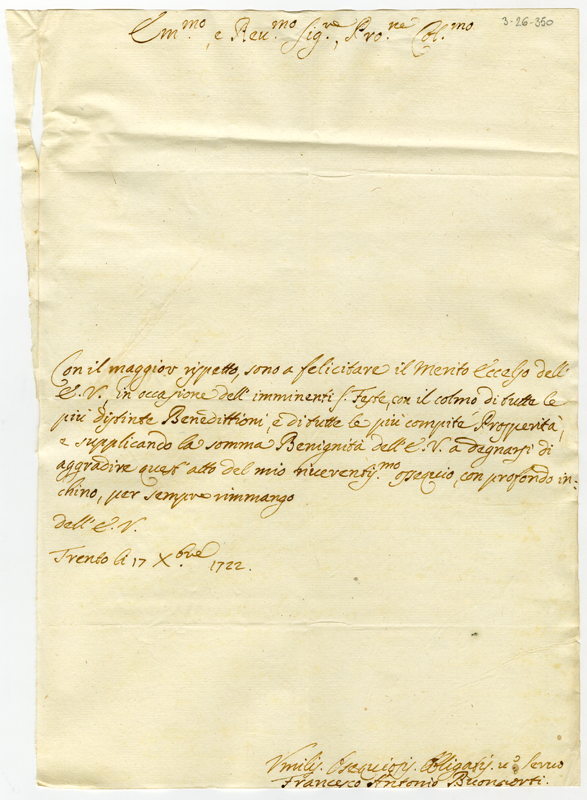 3-26-350
Em.mo, e Reu.mo Sig.re, Pro.ne Col.mo
Con il maggior rispetto, sono a felicitare il Merito Eccelso dell'
E.V., in occasione dell'imminenti S. Feste, con il colmo di tutte le
più distinte Benedittioni, e di tutte le più compite Prosperità,
e supplicando la somma Benignità dell'E.V. a degnarsi di
aggradire quest'atto del mio riverentis.mo ossequio, con profondo in-
chino, per sempre rimmango
dell'E.V.
Trento li 17 Xbre 1722.
Vmilis. Ossequiosis. Obligatis. Servo
Francesco Antonio Buonporti.